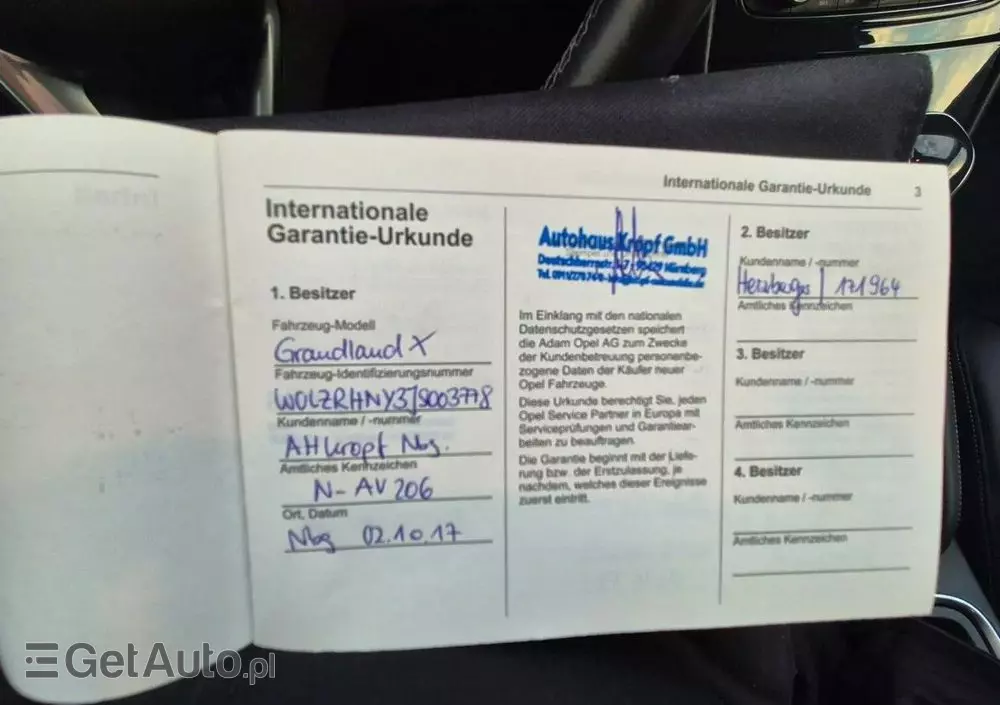 Internationale Garantie-Urkunde 3
Internationale
Garantie-Urkunde
1. Besitzer
Fahrzeug-Modell
Grandland X
Fahrzeug-Identifizierungsnummer
W0LZRHNY3JS003778
Kundenname / -nummer
AH Kropf Nbg.
Amtliches Kennzeichen
N-AV 206
Ort, Datum
Nbg 02.10.17
Autohaus Kropf GmbH
Im Einklang mit den nationalen
Datenschutzgesetzen speichert
die Adam Opel AG zum Zwecke
der Kundenbetreuung personenbe-
zogene Daten der Käufer neuer
Opel Fahrzeuge.
Diese Urkunde berechtigt Sie, jeden
Opel Service Partner in Europa mit
Serviceprüfungen und Garantiear-
beiten zu beauftragen.
Die Garantie beginnt mit der Liefe-
rung bzw. der Erstzulassung, je
nachdem, welches dieser Ereignisse
zuerst eintritt.
2. Besitzer
Kundenname / -nummer
171964
Amtliches Kennzeichen
3. Besitzer
Kundenname / -nummer
Amtliches Kennzeichen
4. Besitzer
Kundenname / -nummer
Amtliches Kennzeichen
GetAuto.pl